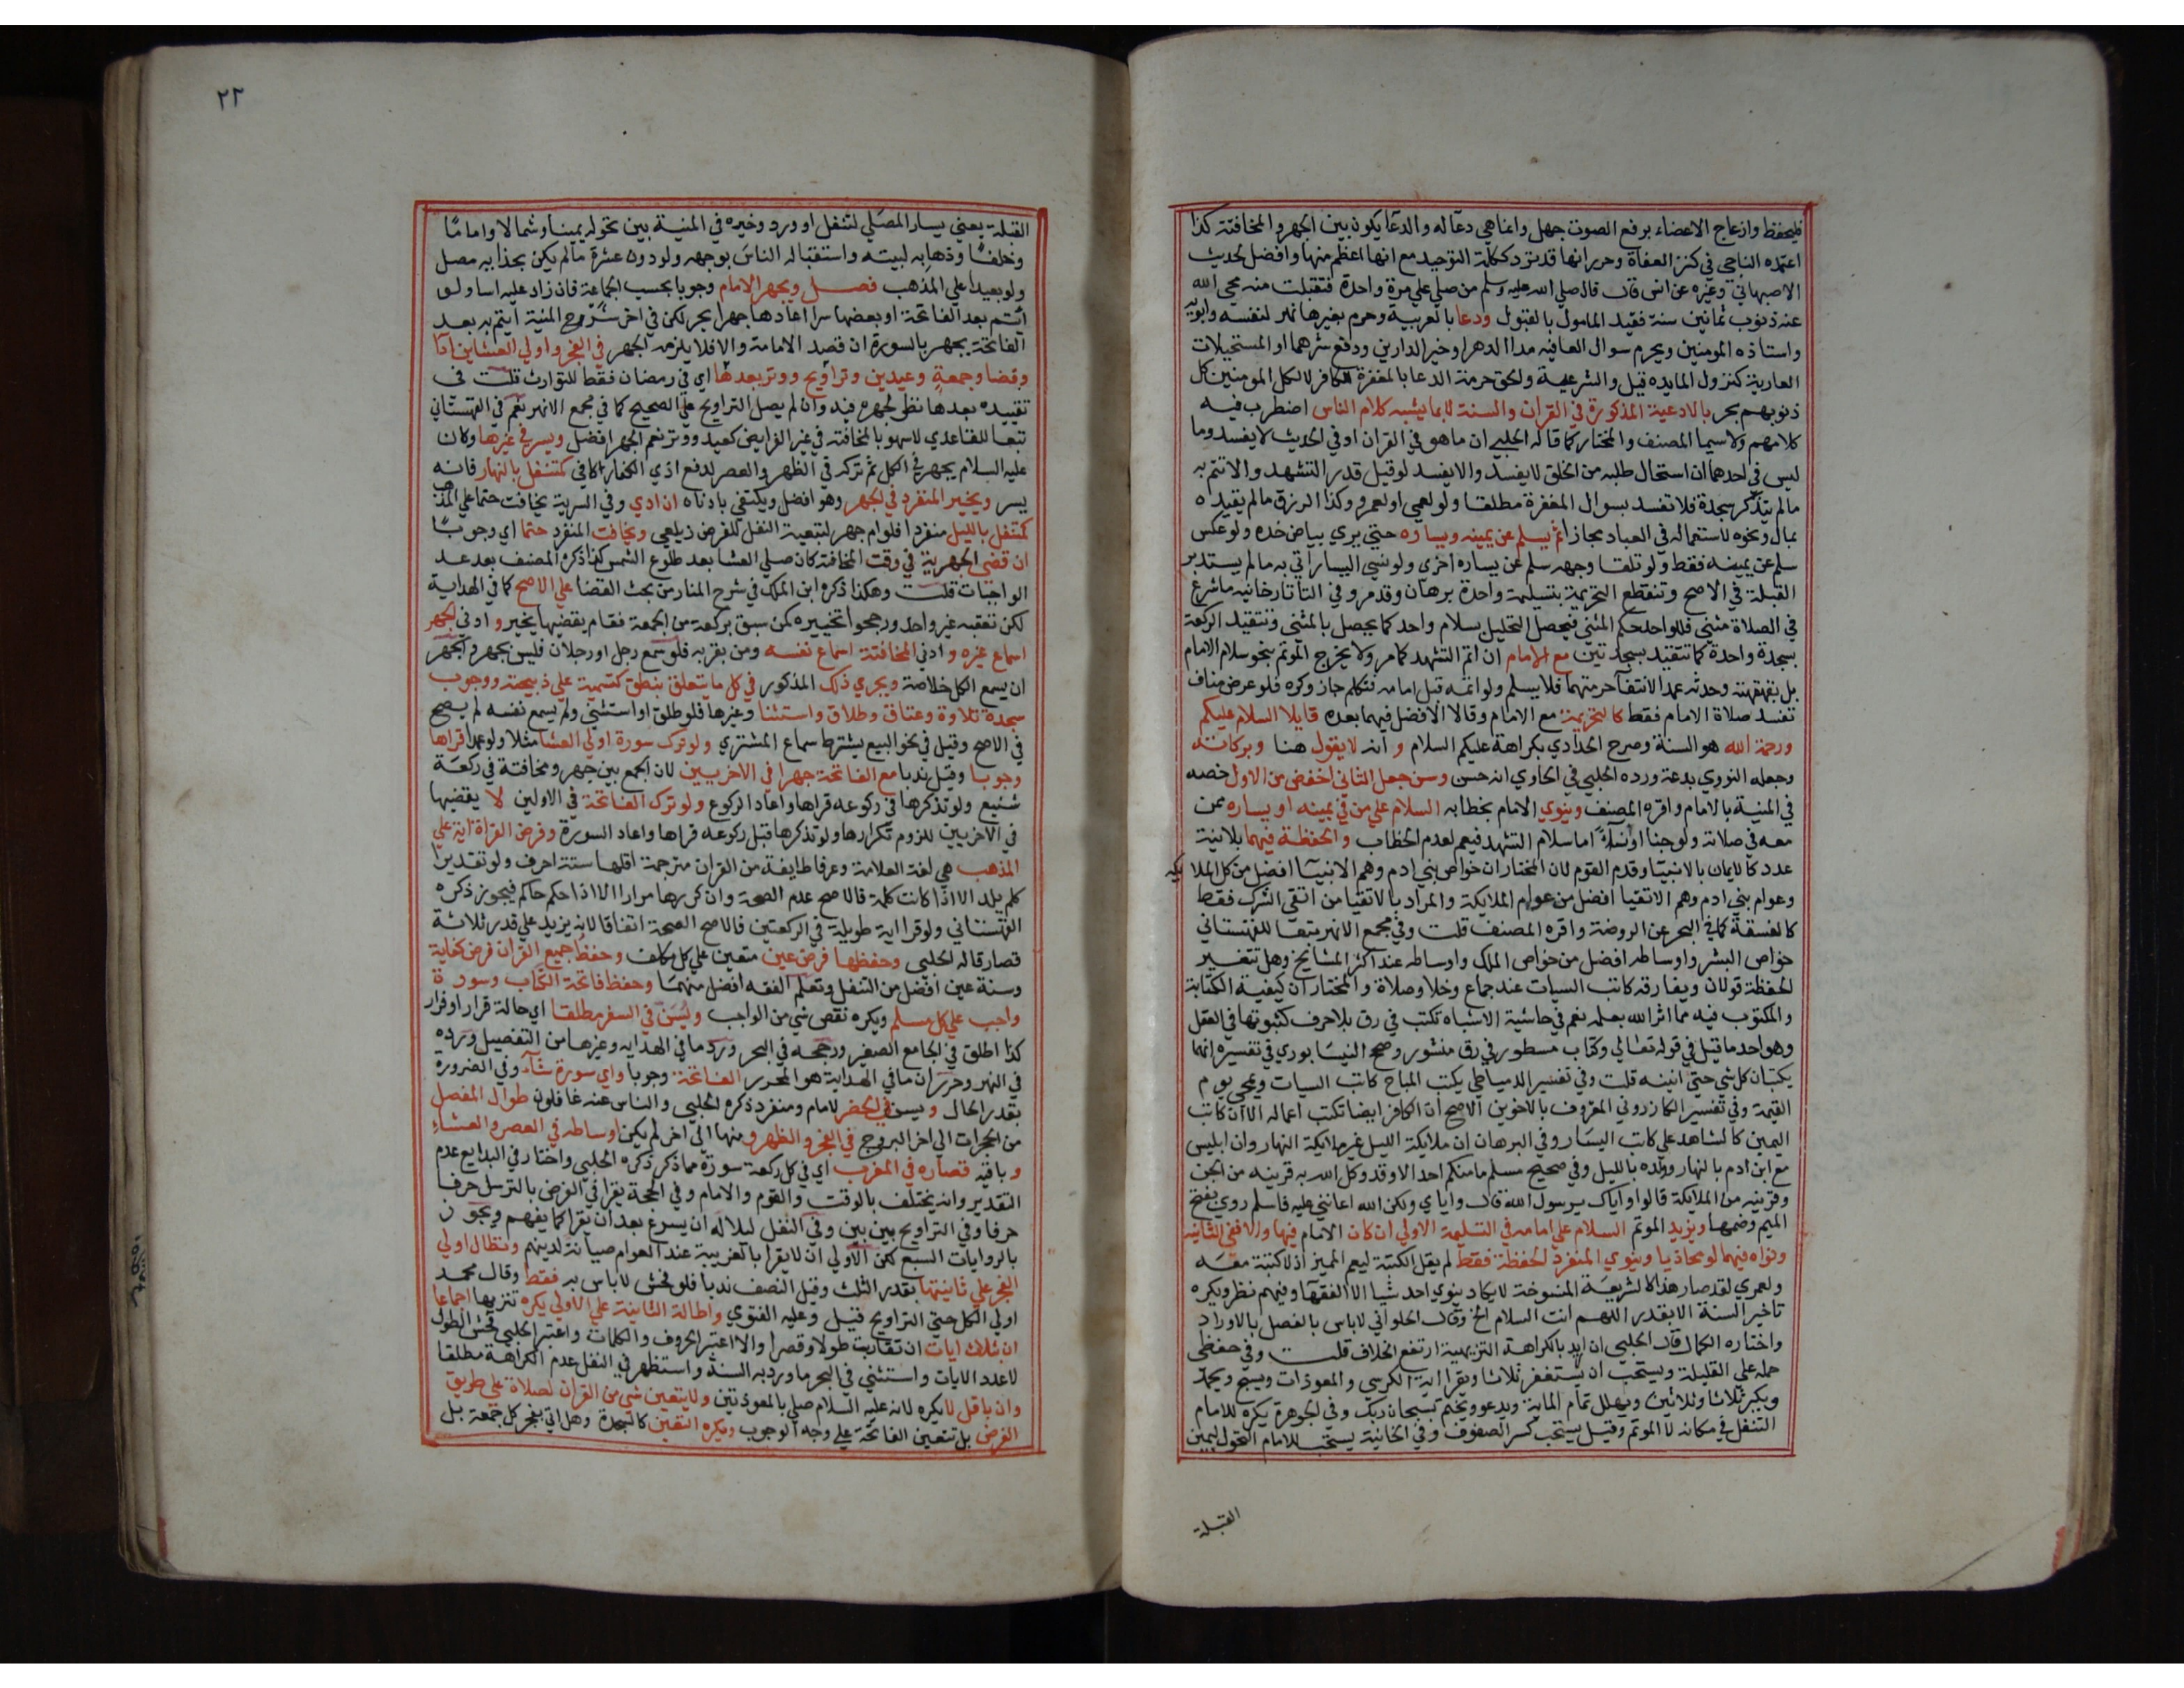 فليحفظ وازعاج الاعضاء برفع الصوت جهل وانما هي دعآ له والدعآ يكون بين الجهر والمخافتة كذا
اعتمده الباجي في كنز العفاة وحرر انها قد ترد ككلمة التوحيد مع انها اعظم منها وافضل لحديث
الاصبهاني وغيره عن انس قال قال صلي الله عليه وسلم من صلي علي مرة واحدة فتقبلت منه محي الله
عنه ذنوب ثمانين سنة فقيد المامول بالقبول ودعا بالعربية وحرم بغيرها نهر لنفسه وابويه
واستاذه المومنين ويحرم سوال العافيه مدا الدهر او خير الدارين ودفع شرهما او المستحيلات
العادية كنزول المايده قيل والشرعية والحق حرمة الدعا بالمغفرة للكافر لا لكل المومنين كل
ذنوبهم بحر بالادعية المذكورة في القران والسنة لا بما يشبه كلام الناس اضطرب فيه
كلامهم ولاسيما المصنف والمختار كما قاله الحلبي ان ما هو في القران او في الحديث لا يفسد وما
ليس في احدهما ان استحال طلبه من الخلق لا يفسد والا يفسد لو قبل قدر التشهد والا تتم به
مالم يتذكر سجدة فلا تفسد بسوال المغفرة مطلقا ولو لعمي او لعمرو وكذا الرزق مالم يقيده
بمال ونحوه لاستعماله في العباد مجازا ثم يسلم عن يمينه ويساره حتي يري بياض خده ولو عكس
سلم عن يمينه فقط ولو تلقا وجهه سلم عن يساره اخري ولو نسي اليسار اتي به مالم يستدبر
القبلة في الاصح وتنقطع التحريمة بتسليمة واحدة برهان وقد مر وفي التاتارخانيه ما شرع
في الصلاة مثني فللواحد حكم المثني فيحصل التحليل بسلام واحد كما يحصل بالمثني وتتقيد الركعة
بسجدة واحدة كما تتقيد بسجدتين مع الامام ان اتم التشهد كما مر ولا يخرج الموتم بنحو سلام الامام
بل بقهقهته وحدثه عمدا لانتفآ حرمتهما فلا يسلم ولو اتمه قبل امامه فتكلم جاز وكره فلو عرض مناف
تفسد صلاة الامام فقط كالتحريمة مع الامام وقالا الافضل فيهما بعده قايلا السلام عليكم
ورحمة الله هو السنة وصرح الحدادي بكراهة عليكم السلام و انه لا يقول هنا وبركاته
وجعله النووي بدعة ورده الحلبي في الحاوي انه حسن وسن جعل الثاني اخفض من الاول خصه
في المنية بالامام واقره المصنف وينوي الامام بخطابه السلام علي من في يمينه او يساره ممن
معه في صلاته ولو جنا او نسآ اما سلام التشهد فيعم لعدم الخطاب والحفظة فيهما بلا نية
عدد كالايمان بالانبيآ وقدم القوم لان المختار ان خواص بني ادم وهم الانبيآ افضل من كل الملايكه
وعوام بني ادم وهم الاتقيا افضل من عوام الملايكة والمراد بالاتقيا من اتقي الشرك فقط
كالفسقة كما في البحر عن الروضة واقره المصنف قلت وفي مجمع الانهر تبعا للقهستاني
خواص البشر واوساطه افضل من خواص الملك واوساطه عند اكثر المشايخ وهل تتغير
الحفظة قولان ويفارقه كاتب السيات عند جماع وخلا وصلاة والمختار ان كيفية الكتابة
والمكتوب فيه مما اثر الله بعلمه نعم في حاشية الاشباه تكتب في رق بلا حرف كثبوتها في العقل
وهو احد ما قيل في قوله تعالي وكتاب مسطور في رق منشور وصحح النيسابوري في تفسيره انهما
يكتبان كل شي حتي انينه قلت وفي تفسير الدمياطي يكتب المباح كاتب السيات ويمحي يوم
القيمة وفي تفسير الكازروني المعروف بالاخوين الاصح ان الكافر ايضا تكتب اعماله الا ان كاتب
اليمين كالشاهد علي كاتب اليسار وفي البرهان ان ملايكة الليل غير ملايكة النهار وان ابليس
مع ابن ادم بالنهار وولده بالليل وفي صحيح مسلم ما منكم احد الا وقد وكل الله به قرينه من الجن
وقرينه من الملايكة قالوا واياك يرسول الله قال واياي ولكن الله اعانني عليه فاسلم روي بفتح
الميم وضمها ويزيد الموتم السلام علي امامه في التسليمة الاولي ان كان الامام فيها والا ففي الثانيه
ونواه فيهما لو محاذيا وينوي المنفرد الحفظة فقط لم يقل الكتبة ليعم المميز اذ لا كتبة معه
ولعمري لقد صار هذا كالشريعة المنسوخة لا يكاد ينوي احد شيا الا الفقهآ وفيهم نظر ويكره
تاخير السنة الا بقدر اللهم انت السلام الخ وقال الحلواني لا باس بالفصل بالاوراد
واختاره الكمال قال الحلبي ان اريد بالكراهة التنزيهية ارتفع الخلاف قلت وفي حفظي
حمله علي القليلة ويستحب ان يستغفر ثلاثا ويقرا اية الكرسي والمعوذات ويسبح ويحمد
ويكبر ثلاثا وثلاثين ويهلل تمام الماية ويدعو ويختم بسبحان ربك وفي الجوهرة يكره للامام
التنفل في مكانه لا الموتم وقيل يستحب كسر الصفوف وفي الخانية يستحب للامام التحول ليمين
القبلة
٢٢
القبلة يعني يسار المصلي لتنفل او ورد وخيره في المنية بين تحوله يمينا وشمالا واماما
وخلفا وذهابه لبيته واستقباله الناس بوجهه ولو دون عشرة مالم يكن بحذايه مصل
ولو بعيدا علي المذهب فصل ويجهر الامام وجوبا بحسب الجماعة فان زاد عليه اسا ولو
أيتم بعد الفاتحة او بعضها سرا اعادها جهرا بحر لكن في اخر شروح المنية ايتم به بعد
الفاتحة يجهر بالسورة ان قصد الامامة والا فلا يلزمه الجهر في الفجر واولي العشاين ادآ
وقضا وجمعة وعيدين وتراويح ووتر بعدها اي في رمضان فقط للتوارث قلت في
تقييده بعدها نظر لجهره فيه وان لم يصل التراويح علي الصحيح كما في مجمع الانهر نعم في القهستاني
تبعا للقاعدي لا سهو بالمخافتة في غير الفرايض كعيد ووتر نعم الجهر افضل ويسر في غيرها وكان
عليه السلام يجهر في الكل ثم تركه في الظهر والعصر لدفع اذي الكفار كافي كمتنفل بالنهار فانه
يسر ويخير المنفرد في الجهر وهو افضل ويكتفي بادناه ان ادي وفي السرية يخافت حتما علي المذهب
كمتنفل بالليل منفردا فلو ام جهر لتبعية النفل للفرض زيلعي ويخافت المنفرد حتما اي وجوبا
ان قضي الجهرية في وقت المخافتة كان صلي العشا بعد طلوع الشمس كذا ذكره المصنف بعد عد
الواجبات قلت وهكذا ذكره ابن الملك في شرح المنار من بحث القضا علي الاصح كما في الهداية
لكن تعقبه غير واحد ورجحوا تخييره كمن سبق بركعة من الجمعة فقام يقضيها يخير و ادني الجهر
اسماع غيره و ادني المخافتة اسماع نفسه ومن بقربه فلو سمع رجل او رجلان فليس بجهر والجهر
ان يسمع الكل خلاصة ويجري ذلك المذكور في كل ما يتعلق بنطق كتسمية علي ذبيحة ووجوب
سجدة تلاوة وعتاق وطلاق واستثنا وغيرها فلو طلق او استثني ولم يسمع نفسه لم يصح
في الاصح وقيل في نحو البيع يشترط سماع المشتري ولو ترك سورة اولي العشا مثلا ولو عمدا قراها
وجوبا وقيل ندبا مع الفاتحة جهرا في الاخريين لان الجمع بين جهر ومخافتة في ركعة
شنيع ولو تذكرها في ركوعه قراها واعاد الركوع ولو ترك الفاتحة في الاوليين لا يقضيها
في الاخريين للزوم تكرارها ولو تذكرها قبل ركوعه قراها واعاد السورة وفرض القراة اية علي
المذهب هي لغة العلامة وعرفا طايفة من القران مترجمة اقلها ستة احرف ولو تقديرا
كلم يلد الا اذا كانت كلمة فالاصح عدم الصحة وان كررها مرارا الا اذا حكم حاكم فيجوز ذكره
القهستاني ولو قرا اية طويلة في الركعتين فالاصح الصحة اتفاقا لانه يزيد علي قدر ثلاثة
قصار قاله الحلبي وحفظها فرض عين متعين علي كل مكلف وحفظ جميع القران فرض كفاية
وسنة عين افضل من التنفل وتعلم الفقه افضل منهما وحفظ فاتحة الكتاب وسورة
واجب علي كل مسلم ويكره نقص شي من الواجب ويسن في السفر مطلقا اي حالة قرار او فرار
كذا اطلق في الجامع الصغير ورجحه في البحر ورد ما في الهدايه وغيرها من التفصيل ورده
في النهر وحرر ان ما في الهداية هو المحرر الفاتحة وجوبا واي سورة شآء وفي الضرورة
بقدر الحال و يسن في الحضر لامام ومنفرد ذكره الحلبي والناس عنه غافلون طوال المفصل
من الحجرات الي اخر البروج في الفجر والظهر و منها الي اخر لم يكن اوساطه في العصر والعشاء
و باقيه قصاره في المغرب اي في كل ركعة سورة مما ذكر ذكره الحلبي واختار في البدايع عدم
التقدير وانه يختلف بالوقت والقوم والامام وفي الحجة يقرا في الفرض بالترسل حرفا
حرفا وفي التراويح بين بين وفي النفل ليلا له ان يسرع بعد ان يقرا كما يفهم ويجوز
بالروايات السبع لكن الاولي ان لا يقرا بالغريبة عند العوام صيانة لدينهم وتطال اولي
الفجر علي ثانيتها بقدر الثلث وقيل النصف ندبا فلو فحش لا باس به فقط وقال محمد
اولي الكل حتي التراويح قيل وعليه الفتوي واطالة الثانية علي الاولي يكره تنزيها اجماعا
ان بثلاث ايات ان تقاربت طولا وقصرا والا اعتبر الحروف والكلمات واعتبر الحلبي فحش الطول
لا عدد الايات واستثني في البحر ما ورد به السنة واستظهر في النفل عدم الكراهة مطلقا
وان باقل لا يكره لانه عليه السلام صلي بالمعوذتين ولا يتعين شي من القران لصلاة علي طريق
الفرض بل تتعين الفاتحة علي وجه الوجوب ويكره التعيين كالسجدة وهل اتي بفجر كل جمعة بل